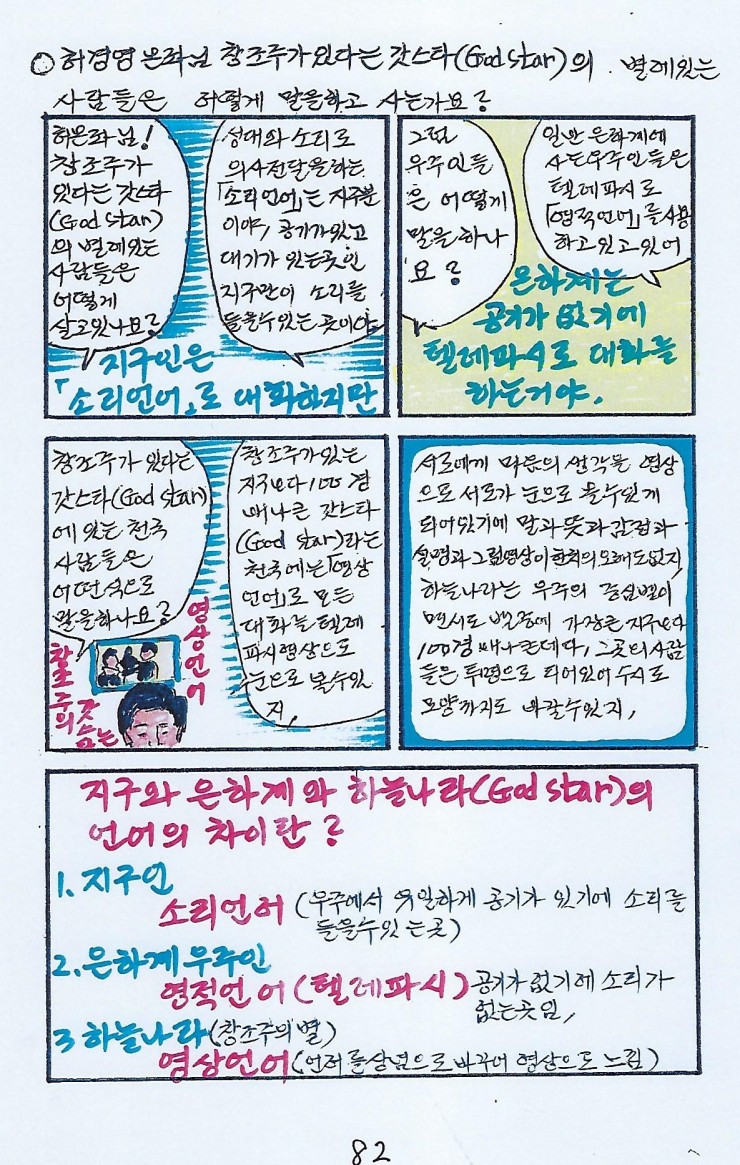 ○ 허경영 은하님 창조주가 있다는 갓스타(God star)의 별에 있는
사람들은 어떻게 말을하고 사는가요?
허은하님!
창조주가
있다는 갓스타
(God star)
의 별에있는
사람들은
어떻게
살고있나요?
성대와 소리로
의사전달을하는
「소리언어」는 지구뿐
이야, 공기가있고
대기가 있는곳인
지구만이 소리를
들을수있는 곳이야
지구인은
「소리언어」로 대화하지만
그럼
우주인들
은 어떻게
말을 하나
요?
일반 은하계에
사는우주인들은
텔레파시로
「영적언어」를 사용
하고 있고있어
은하계는
공기가 없기에
텔레파시로 대화를
하는거야.
창조주가 있다는
갓스타(God star)
에 있는 천국
사람들은
어떤식으로
말을하나요?
창조주가있는
지구보다 100경
배나큰 갓스타
(God star)라는
천국에는「영상
언어」로 모든
대화를 텔레
파시영상으로
눈으로 볼수있
지,
영상언어
창조주의
갓스타는
서로에게 마음의 생각을 영상
으로 서로가 눈으로 볼수있게
되어있기에 말과 뜻과 감정과
설명과 그림영상이 한치의 오해도없지
하늘나라는 우주의 중심별이
면서도 별중에 가장큰 지구보다
100경 배나 큰데다, 그곳의 사람
들은 투명으로 되어있어 수시로
모양까지도 바꿀수있지,
지구와 은하계와 하늘나라(God star)의
언어의 차이란?
1. 지구인
소리언어 (우주에서 유일하게 공기가 있기에 소리를
들을수있는곳)
2. 은하계 우주인
영적언어(텔레파시) 공기가 없기에 소리가
없는곳임,
3 하늘나라(창조주의 별)
영상언어(언어를상념으로바꾸어 영상으로 느낌)
82